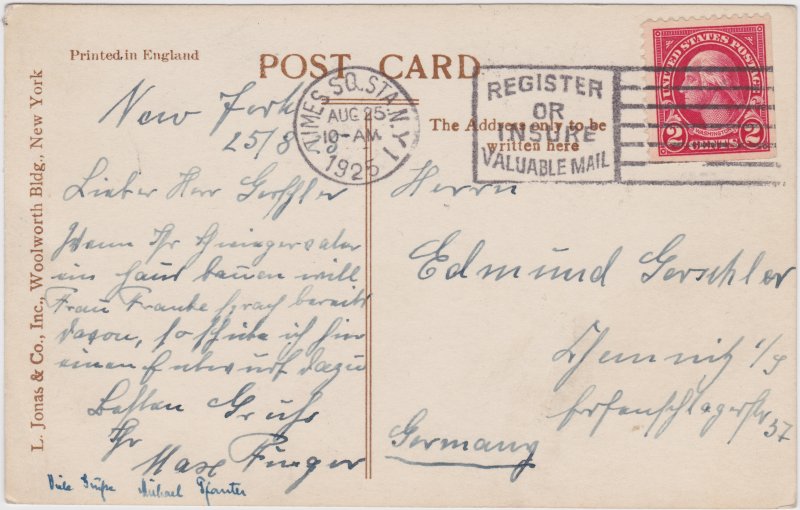 Printed in England
POST CARD
L. Jonas & Co., Inc., Woolworth Bldg., New York
TIMES SQ. STA. N.Y.
AUG 25
10-AM
1925
REGISTER
OR
INSURE
VALUABLE MAIL
UNITED STATES POSTAGE
WASHINGTON
2 CENTS 2
The Address only to be
written here
New York
25/8
Lieber Herr Gerschler
Wenn Ihr
ein Haus bauen will
Frau Franke sprach bereits
davon, so schicke ich hier
einen Entwurf dazu
Besten Gruß
Ihr
Max Finger
Viele Grüße Michael Pfanter
Herrn
Edmund Gerschler
Chemnitz i/S
Erfenschlagerstr
57
Germany